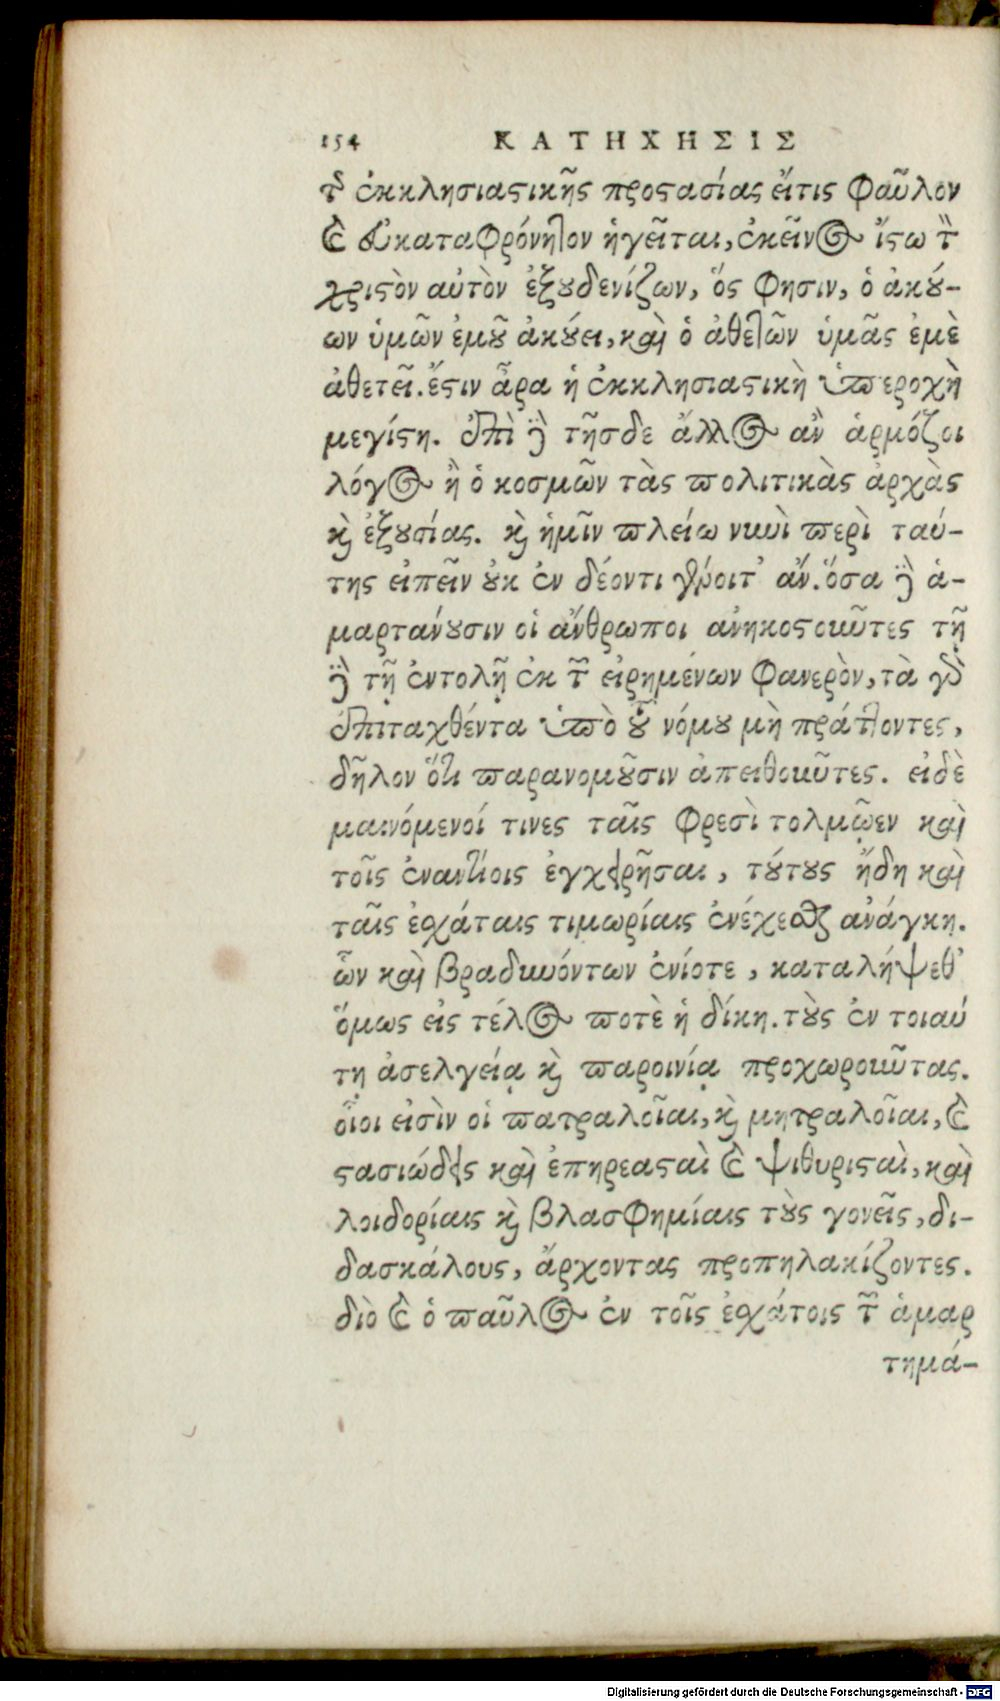 154 ΚΑΤΗΧΗΣΙΣ
τῆς ἐκκλησιαστικῆς προστασίας εἴτις φαῦλον
καὶ εὐκαταφρόνητον ἡγεῖται, ἐκεῖνος ἴστω τὸν
χριστὸν αὐτὸν ἐξουδενίζων, ὅς φησιν, ὁ ἀκού-
ων ὑμῶν ἐμοῦ ἀκούει, καὶ ὁ ἀθετῶν ὑμᾶς ἐμὲ
ἀθετεῖ. ἔστιν ἆρα ἡ ἐκκλησιαστικὴ ὑπεροχὴ
μεγίστη. ἐπὶ δὲ τῆσδε ἄλλος ἂν ἁρμόζοι
λόγος ἢ ὁ κοσμῶν τὰς πολιτικὰς ἀρχὰς
καὶ ἐξουσίας. καὶ ἡμῖν πλείω νυνὶ περὶ ταύ-
της εἰπεῖν οὐκ ἐν δέοντι γένοιτ' ἄν. ὅσα δὲ ἁ-
μαρτάνουσιν οἱ ἄνθρωποι ἀνηκοστοῦντες τῇ
δὲ τῇ ἐντολῇ ἐκ τῶν εἰρημένων φανερὸν, τὰ γὰρ
ἐπιταχθέντα ὑπὸ τοῦ νόμου μὴ πράττοντες,
δῆλον ὅτι παρανομοῦσιν ἀπειθοῦντες. εἰδὲ
μαινόμενοί τινες ταῖς φρεσὶ τολμῷεν καὶ
τοῖς ἐναντίοις ἐγχειρῆσαι, τούτους ἤδη καὶ
ταῖς ἐσχάταις τιμωρίαις ἐνέχεσθαι ἀνάγκη.
ὧν καὶ βραδυνόντων ἐνίοτε, καταλήψεθ'
ὅμως εἰς τέλος ποτὲ ἡ δίκη. τοὺς ἐν τοιαύ
τῃ ἀσελγείᾳ καὶ παροινίᾳ προχωροῦντας.
οἷοι εἰσὶν οἱ πατραλοῖαι, καὶ μητραλοῖαι, καὶ
στασιώδεις καὶ ἐπηρεασταὶ καὶ ψιθυρισταὶ, καὶ
λοιδορίαις καὶ βλασφημίαις τοὺς γονεῖς, δι-
δασκάλους, ἄρχοντας προπηλακίζοντες.
διὸ καὶ ὁ παῦλος ἐν τοῖς ἐσχάτοις τῶν ἁμαρ
τημά-
Digitalisierung gefördert durch die Deutsche Forschungsgemeinschaft - DFG